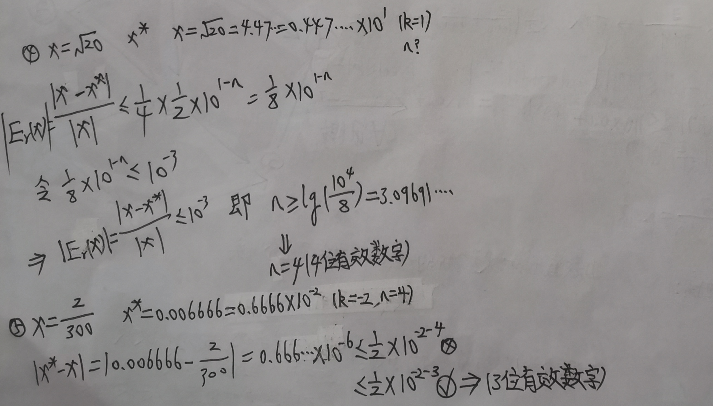 ④ x=√20 x* x=√20=4.47…=0.447…×10¹ (k=1)
n?
|Eᵣ(x)|=|x-x*|/|x|≤1/4×1/2×10¹⁻ⁿ=1/8×10¹⁻ⁿ
令 1/8×10¹⁻ⁿ≤10⁻³
⇒ |Eᵣ(x)|=|x-x*|/|x|≤10⁻³ 即 n≥lg(10⁴/8)=3.09691…
⇓
n=4(4位有效数字)
⑤ x=2/300 x*=0.006666=0.6666×10⁻² (k=-2,n=4)
|x*-x|=|0.006666-2/300|=0.666…×10⁻⁶≤1/2×10⁻²⁻⁴ⓧ
≤1/2×10⁻²⁻³ⓥ ⇒ (3位有效数字)